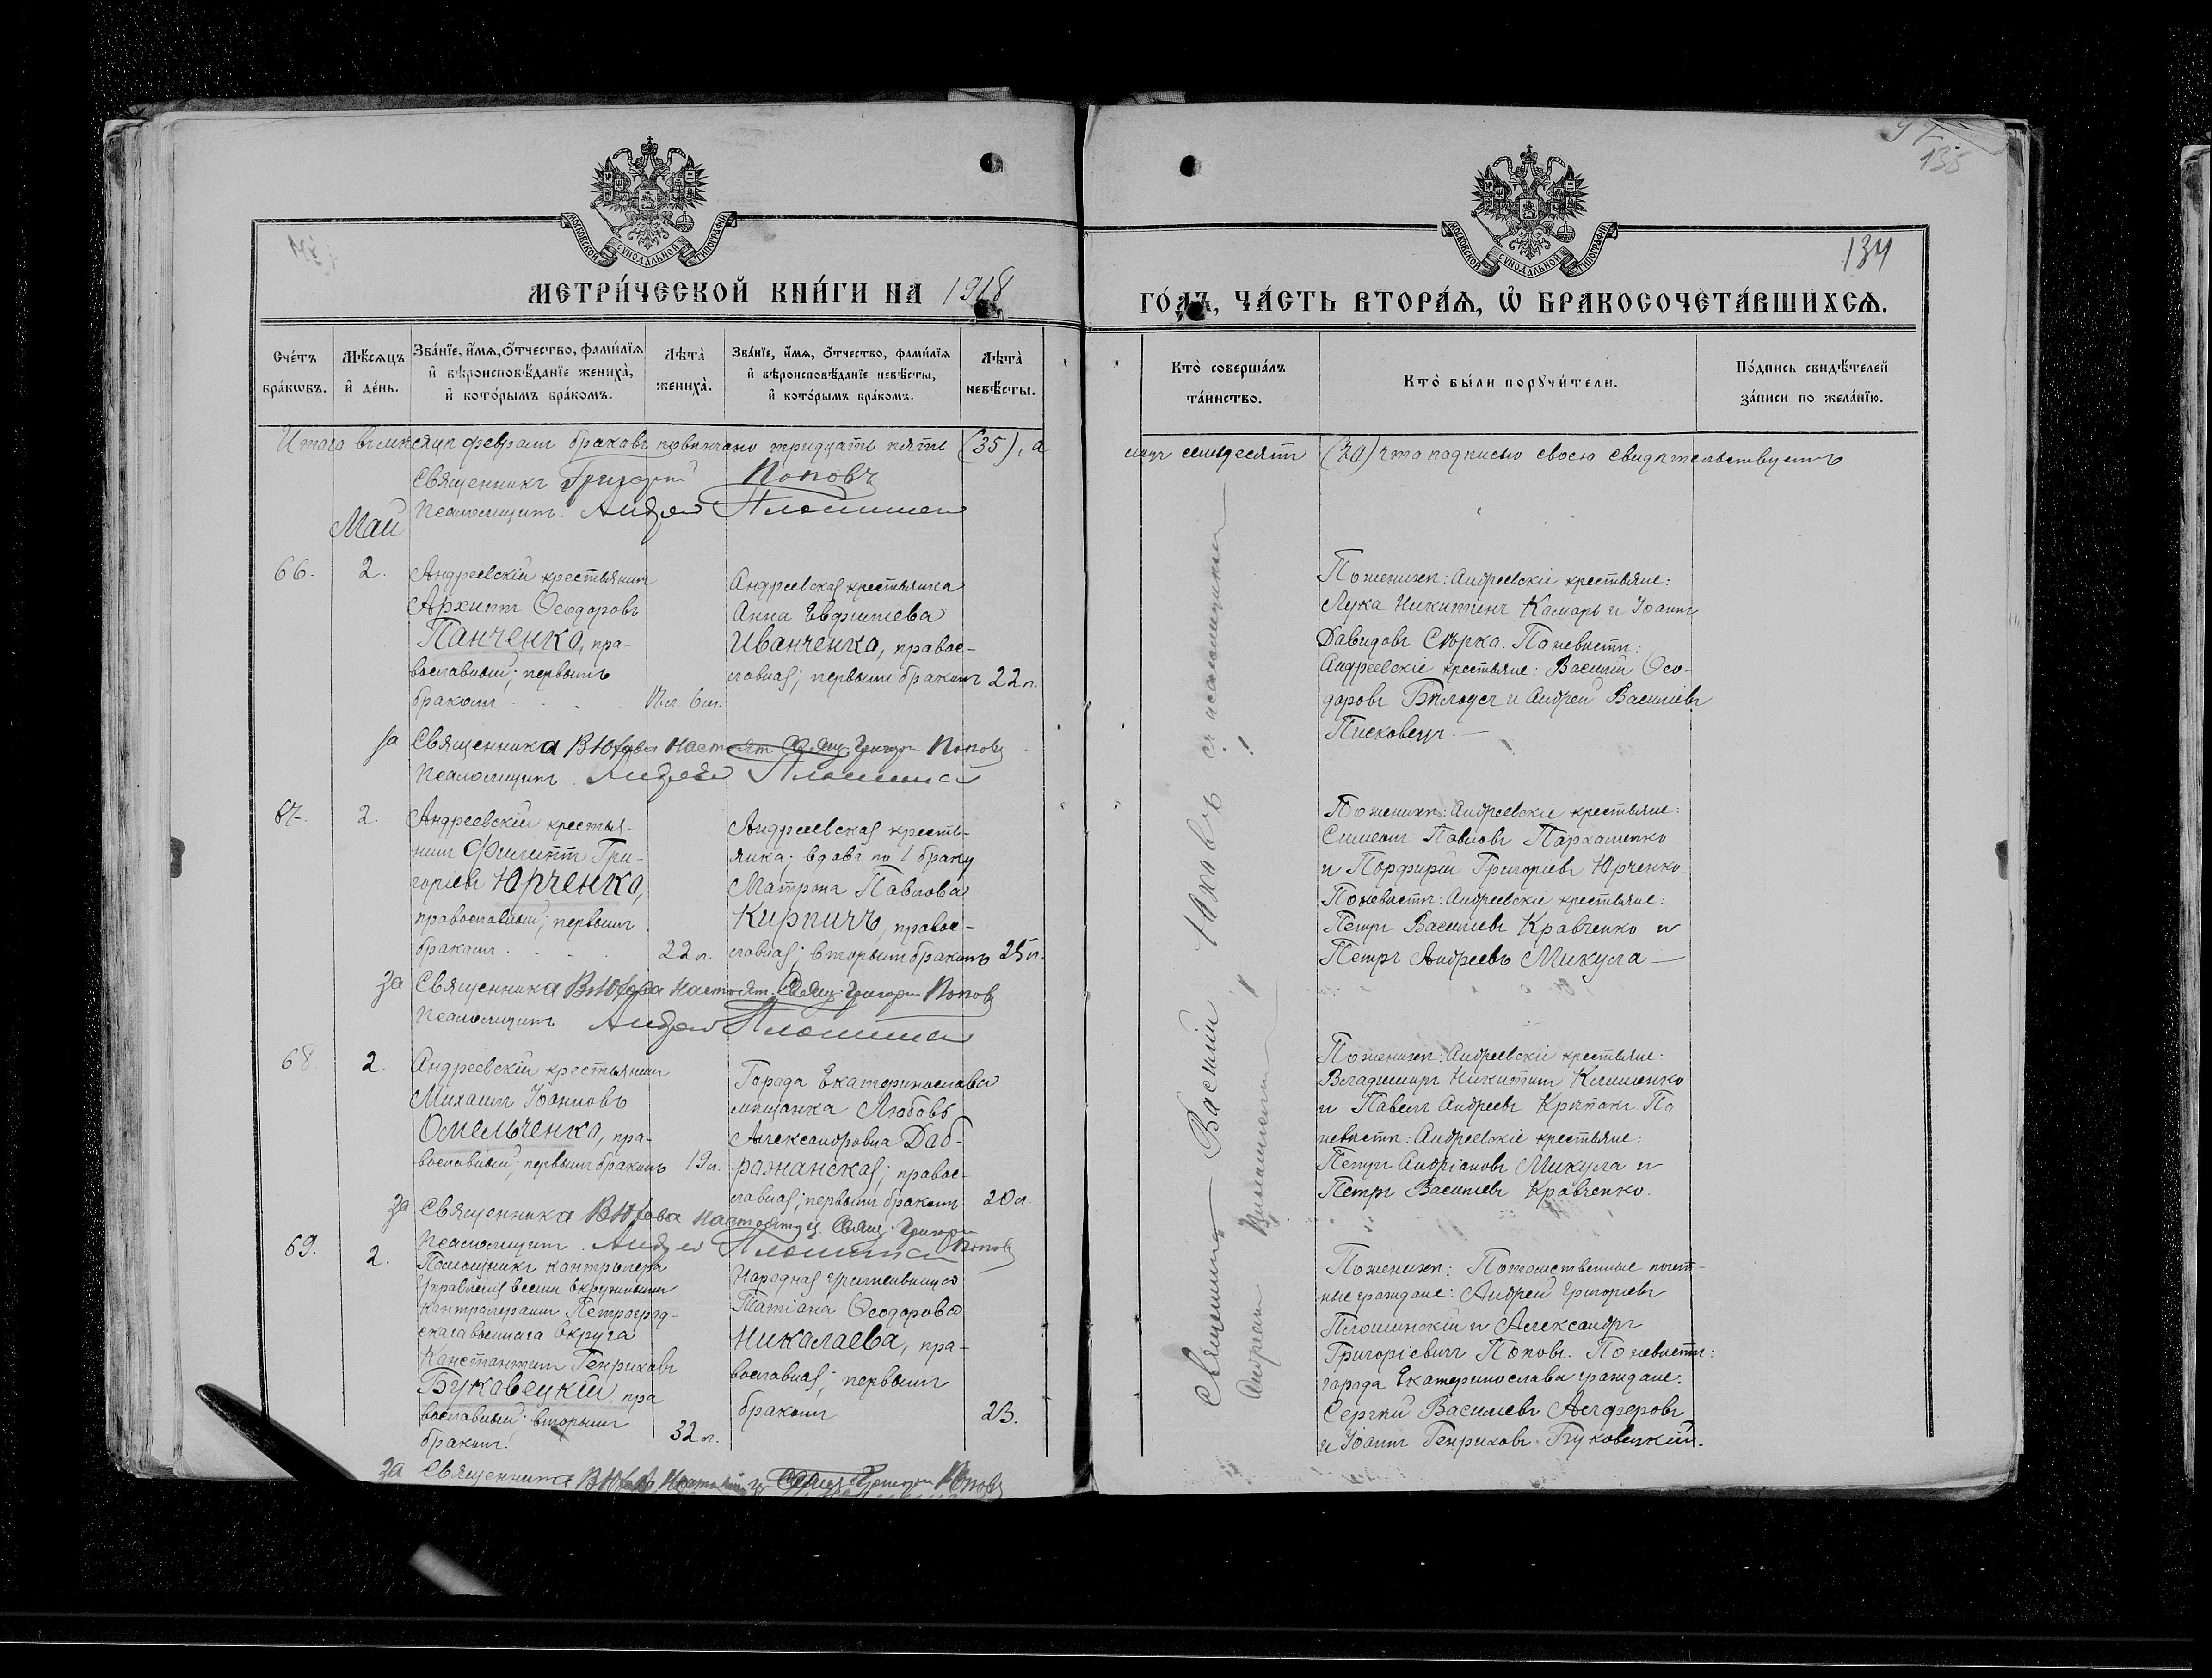 97
135
134
МОСКОВСКОЙ СУНОДАЛЬНОЙ ТИПОГРАФІИ
МОСКОВСКОЙ СУНОДАЛЬНОЙ ТИПОГРАФІИ
МЕТРИ́ЧЕСКОЙ КНИ́ГИ НА 1918
ГО́ДЪ, ЧА́СТЬ ВТОРА́Я, Ѡ҆ БРАКОСОЧЕТА́ВШИХСЯ.
Сче́тъ бра́кѡвъ.
Мѣ́сяцъ и҆ де́нь.
Зва́нїе, и҆́мя, ѻ҆́тчество, фами́лїя
и҆ вѣроисповѣ́данїе жениха̀,
и҆ кото́рымъ бра́комъ.
Лѣта̀ жениха̀.
Зва́нїе, и҆́мя, ѻ҆́тчество, фами́лїя
и҆ вѣроисповѣ́данїе невѣ́сты,
и҆ кото́рымъ бра́комъ.
Лѣта̀ невѣ́сты.
Кто̀ соверша́лъ
та́инство.
Кто̀ бы́ли порꙋчи́тели.
По́дпись свидѣ́телей
за́писи по жела́нїю.
Итого въ мѣсяцѣ февралѣ браковъ повѣнчано тридцать пять (35), а
лицъ семьдесятъ (70) что подписью своею свидѣтельствуемъ
Священникъ Григорій Поповъ
Псаломщикъ Андрей
Май
66. 2.
Андреевскій крестьянинъ
Архипъ Ѳеодоровъ
Панченко, пра-
вославный; первымъ
бракомъ
Андреевская крестьянка
Анна Евфиміева
Иванченко, правос-
лавная; первымъ бракомъ 22 л.
По женихѣ: Андреевскіе крестьяне:
Лука Никитинъ Комарь и Іоаннъ
Давидовъ Сѣрка. По невѣстѣ:
Андреевскіе крестьяне: Василій Ѳео-
доровъ и Андрей Васильевъ
Писковецъ.
за Священника В. Юхова Настоят. Свящ. Григорій Поповъ
Псаломщикъ Андрей
67. 2.
Андреевскій крестья-
нинъ Филиппъ Гри-
горьевъ Юрченко,
православный; первымъ
бракомъ 22 л.
Андреевская кресть-
янка; вдова по 1 браку
Матрона Павлова
Кирпичъ, правос-
лавная; вторымъ бракомъ 25 л.
По женихѣ: Андреевскіе крестьяне:
Симеонъ Павловъ Пархоменко
и Порфирій Григорьевъ Юрченко.
По невѣстѣ: Андреевскіе крестьяне:
Петръ Васильевъ Кравченко и
Петръ Андреевъ Микула
за Священника В. Юхова Настоят. Свящ. Григорій Поповъ
Псаломщикъ Андрей
68 2.
Андреевскій крестьянинъ
Михаилъ Іоанновъ
Омельченко, пра-
вославный; первымъ бракомъ 19 л.
Города Екатеринослава
мѣщанка Любовь
Александровна Доб-
рожанская; правос-
лавная; первымъ бракомъ 20 л
По женихѣ: Андреевскіе крестьяне:
Владимиръ Никитинъ Клименко
и Павелъ Андреевъ. По
невѣстѣ: Андреевскіе крестьяне:
Петръ Андріановъ Микула и
Петръ Васильевъ Кравченко.
за Священника В. Юхова Настоятъ. Свящ. Григорій
Поповъ
Псаломщикъ Андрей
69. 2.
Помощникъ контролера
Управленія окружнымъ
контролеромъ Петроград-
скаго военнаго округа
Константинъ Генриховъ
Буковецкій, пра
вославный; вторымъ
бракомъ. 32 л.
Народная учительница
Татіана Ѳеодорова
Николаева, пра-
вославная; первымъ
бракомъ 23.
По женихѣ: Потомственные почет-
ные граждане: Андрей Григорьевъ
Площинскій и Александръ
Григорьевичъ Поповъ. По невѣстѣ:
города Екатеринослава граждане:
Сергѣй Васильевъ
и Іоаннъ Генриховъ Буковецкій.
за Священника В. Юхова Свящ. Григорій Поповъ
Священникъ Василій Юховъ съ псаломщикомъ
Андреемъ